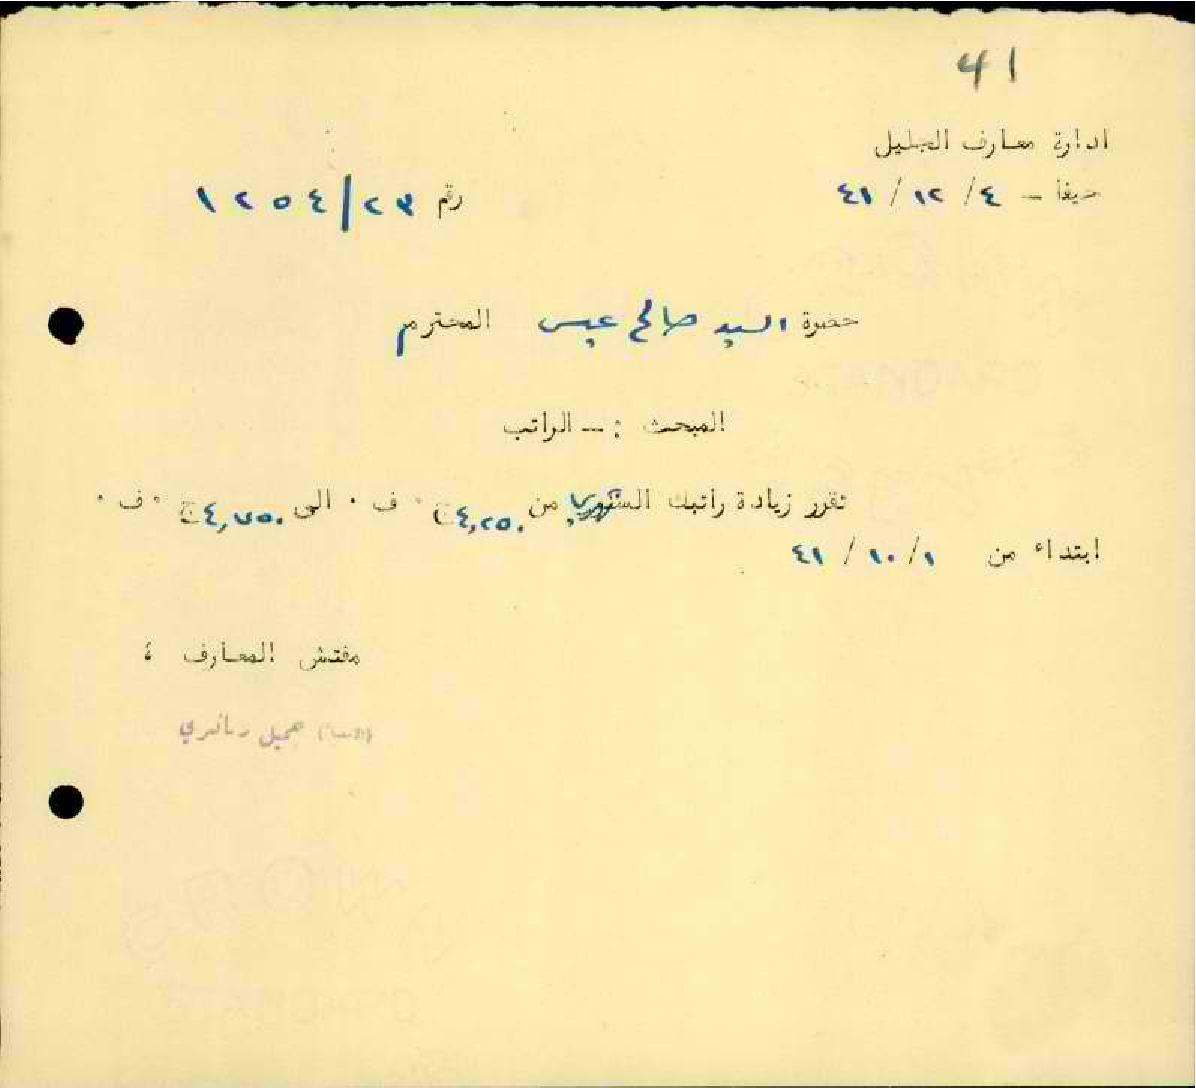 41
ادارة معارف الجليل
حيفا - ٤/ ١٢/ ٤١
رقم ١٢٥٤/٢٣
حضرة السيد صالح عيسى المحترم
المبحث :- الراتب
تقرر زيادة راتبك من ٤,٢٥٠ج ٠ ف ٠ الى ٤,٧٥٠ج ٠ ف ٠
ابتداء من ١/ ١٠/ ٤١
مفتش المعارف ؛
جميل